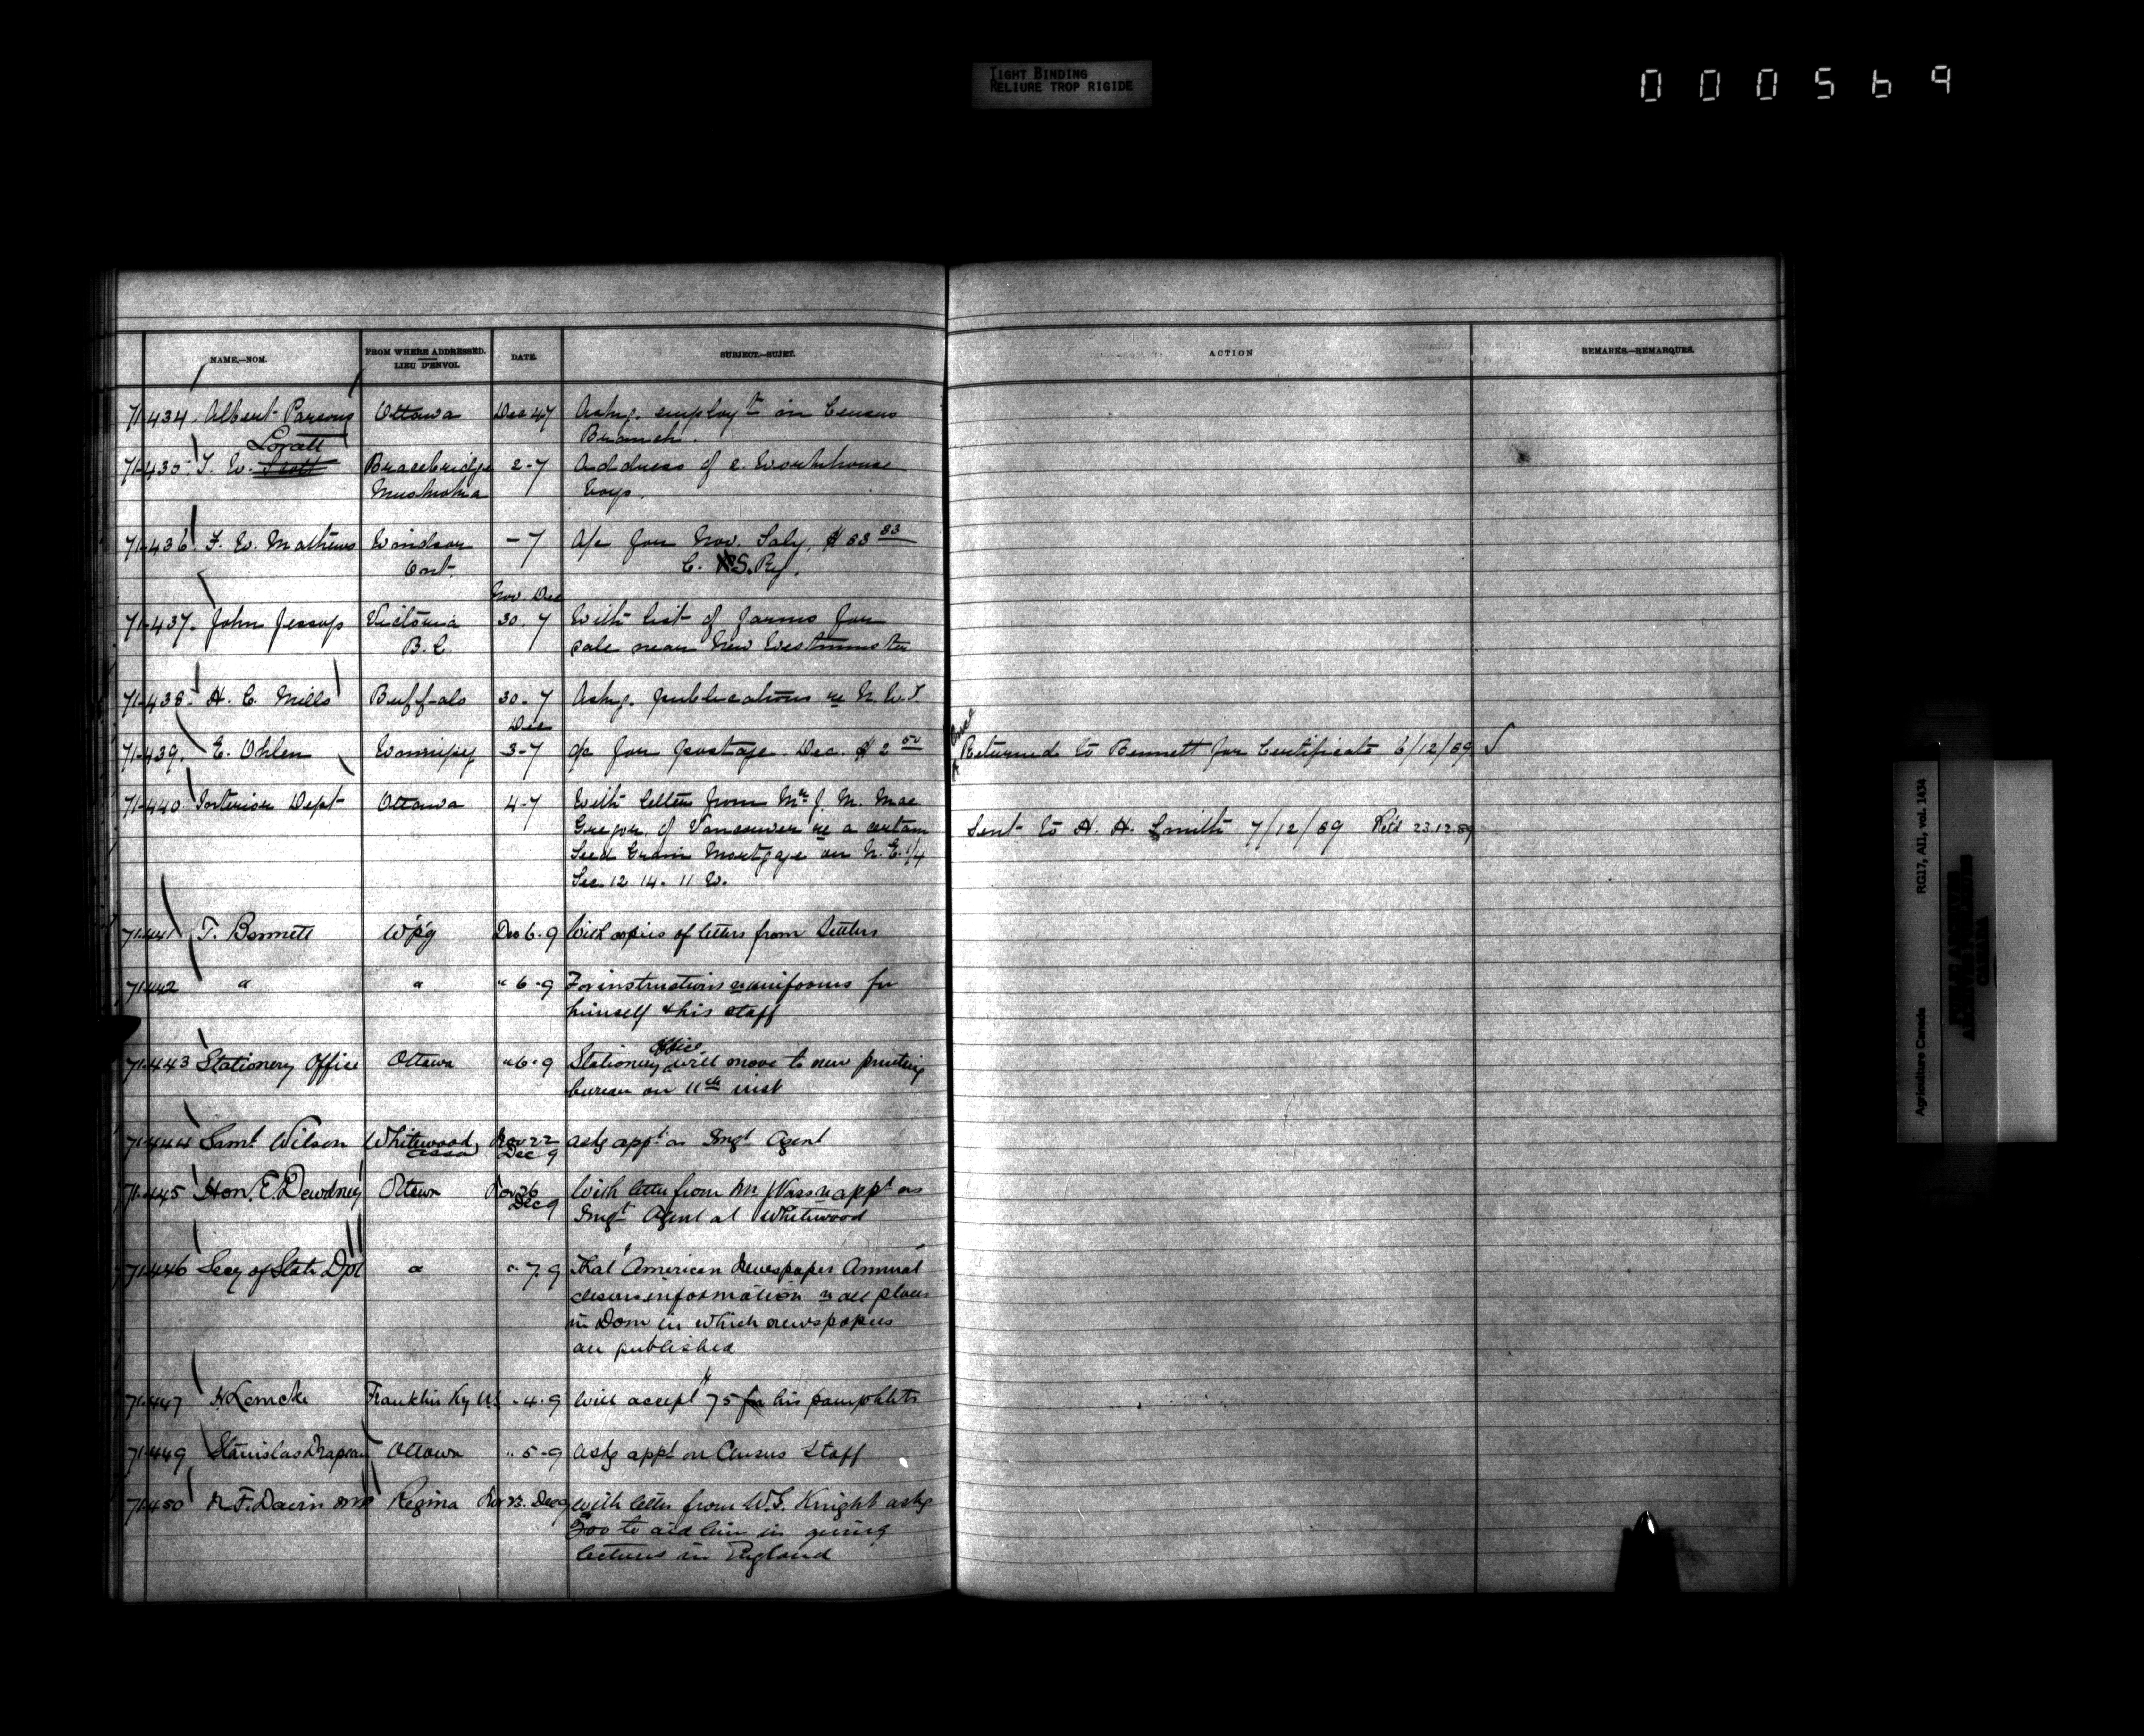 TIGHT BINDING
RELIURE TROP RIGIDE
000569
NAME.—NOM.
FROM WHERE ADDRESSED.
LIEU D'ENVOI.
DATE.
SUBJECT.—SUJET.
ACTION
REMARKS.—REMARQUES.
71.434. Albert Parsons Ottawa Dec 4 7 Askg. employt in Census
Branch.
Lovatt
71.435. T. W. Scott Bracebridge 2-7 Address of 2. Workhouse
Muskoka boys.
71.436 F. W. Mathews Windsor -7 A/c for Nov. Saly, $83 33
Ont. C. S. Ry.
Nov. Dec
71.437. John Jessop Victoria 30. 7 With list of farms for
B.C. sale near New Westminster
71.438. H. C. Mills Buffalo 30. 7 Askg. publications re N.W.T
Dec
71.439. E. Ohlen Winnipeg 3-7 a/c for postage Dec. $2 50 Returned to Bennett for Certificate 6/12/89
71.440 Interior Dept Ottawa 4.7 With letter from Mr J. M. Mac
Gregor of Vancouver re a certain
Sent to H. H. Smith 7/12/89 Retd 23.12.89
Seed Grain Mortgage on N.E. 1/4
Sec. 12 14. 11 W.
71.441 T. Bennett W'p'g Dec 6.9 With copies of letters from Settlers
71.442 " " " 6.9 For instructions re uniforms for
himself & his staff
Office
71.443 Stationery Office Ottawa " 6.9 Stationery will move to new printing
bureau on 11th inst
71.444 Saml Wilson Whitewood Nov 22 askg appt as Imgt Agent
Assa Dec 9
71.445 Hon. E Dewdney Ottawa Nov 26 With letter from Mr re appt as
Dec 9 Imgt Agent at Whitewood
71.446 Secy of State Dpt " " 7.9 That "American Newspaper Annual"
information re all places
in Dom in which newspapers
are published
71.447 H Lemcke Franklin Ky U.S " 4.9 Will accept $75 for his pamphlets
71.449 Stanislas Drapeau Ottawa " 5.9 Askg appt on Census Staff
71.450 N. F. Davin MP Regina Nov 23. Dec 9 With letter from W. G. Knight askg
to aid him in giving
lectures in England
Agriculture Canada RG17, AII, vol. 1434
PUBLIC ARCHIVES
ARCHIVES PUBLIQUES
CANADA